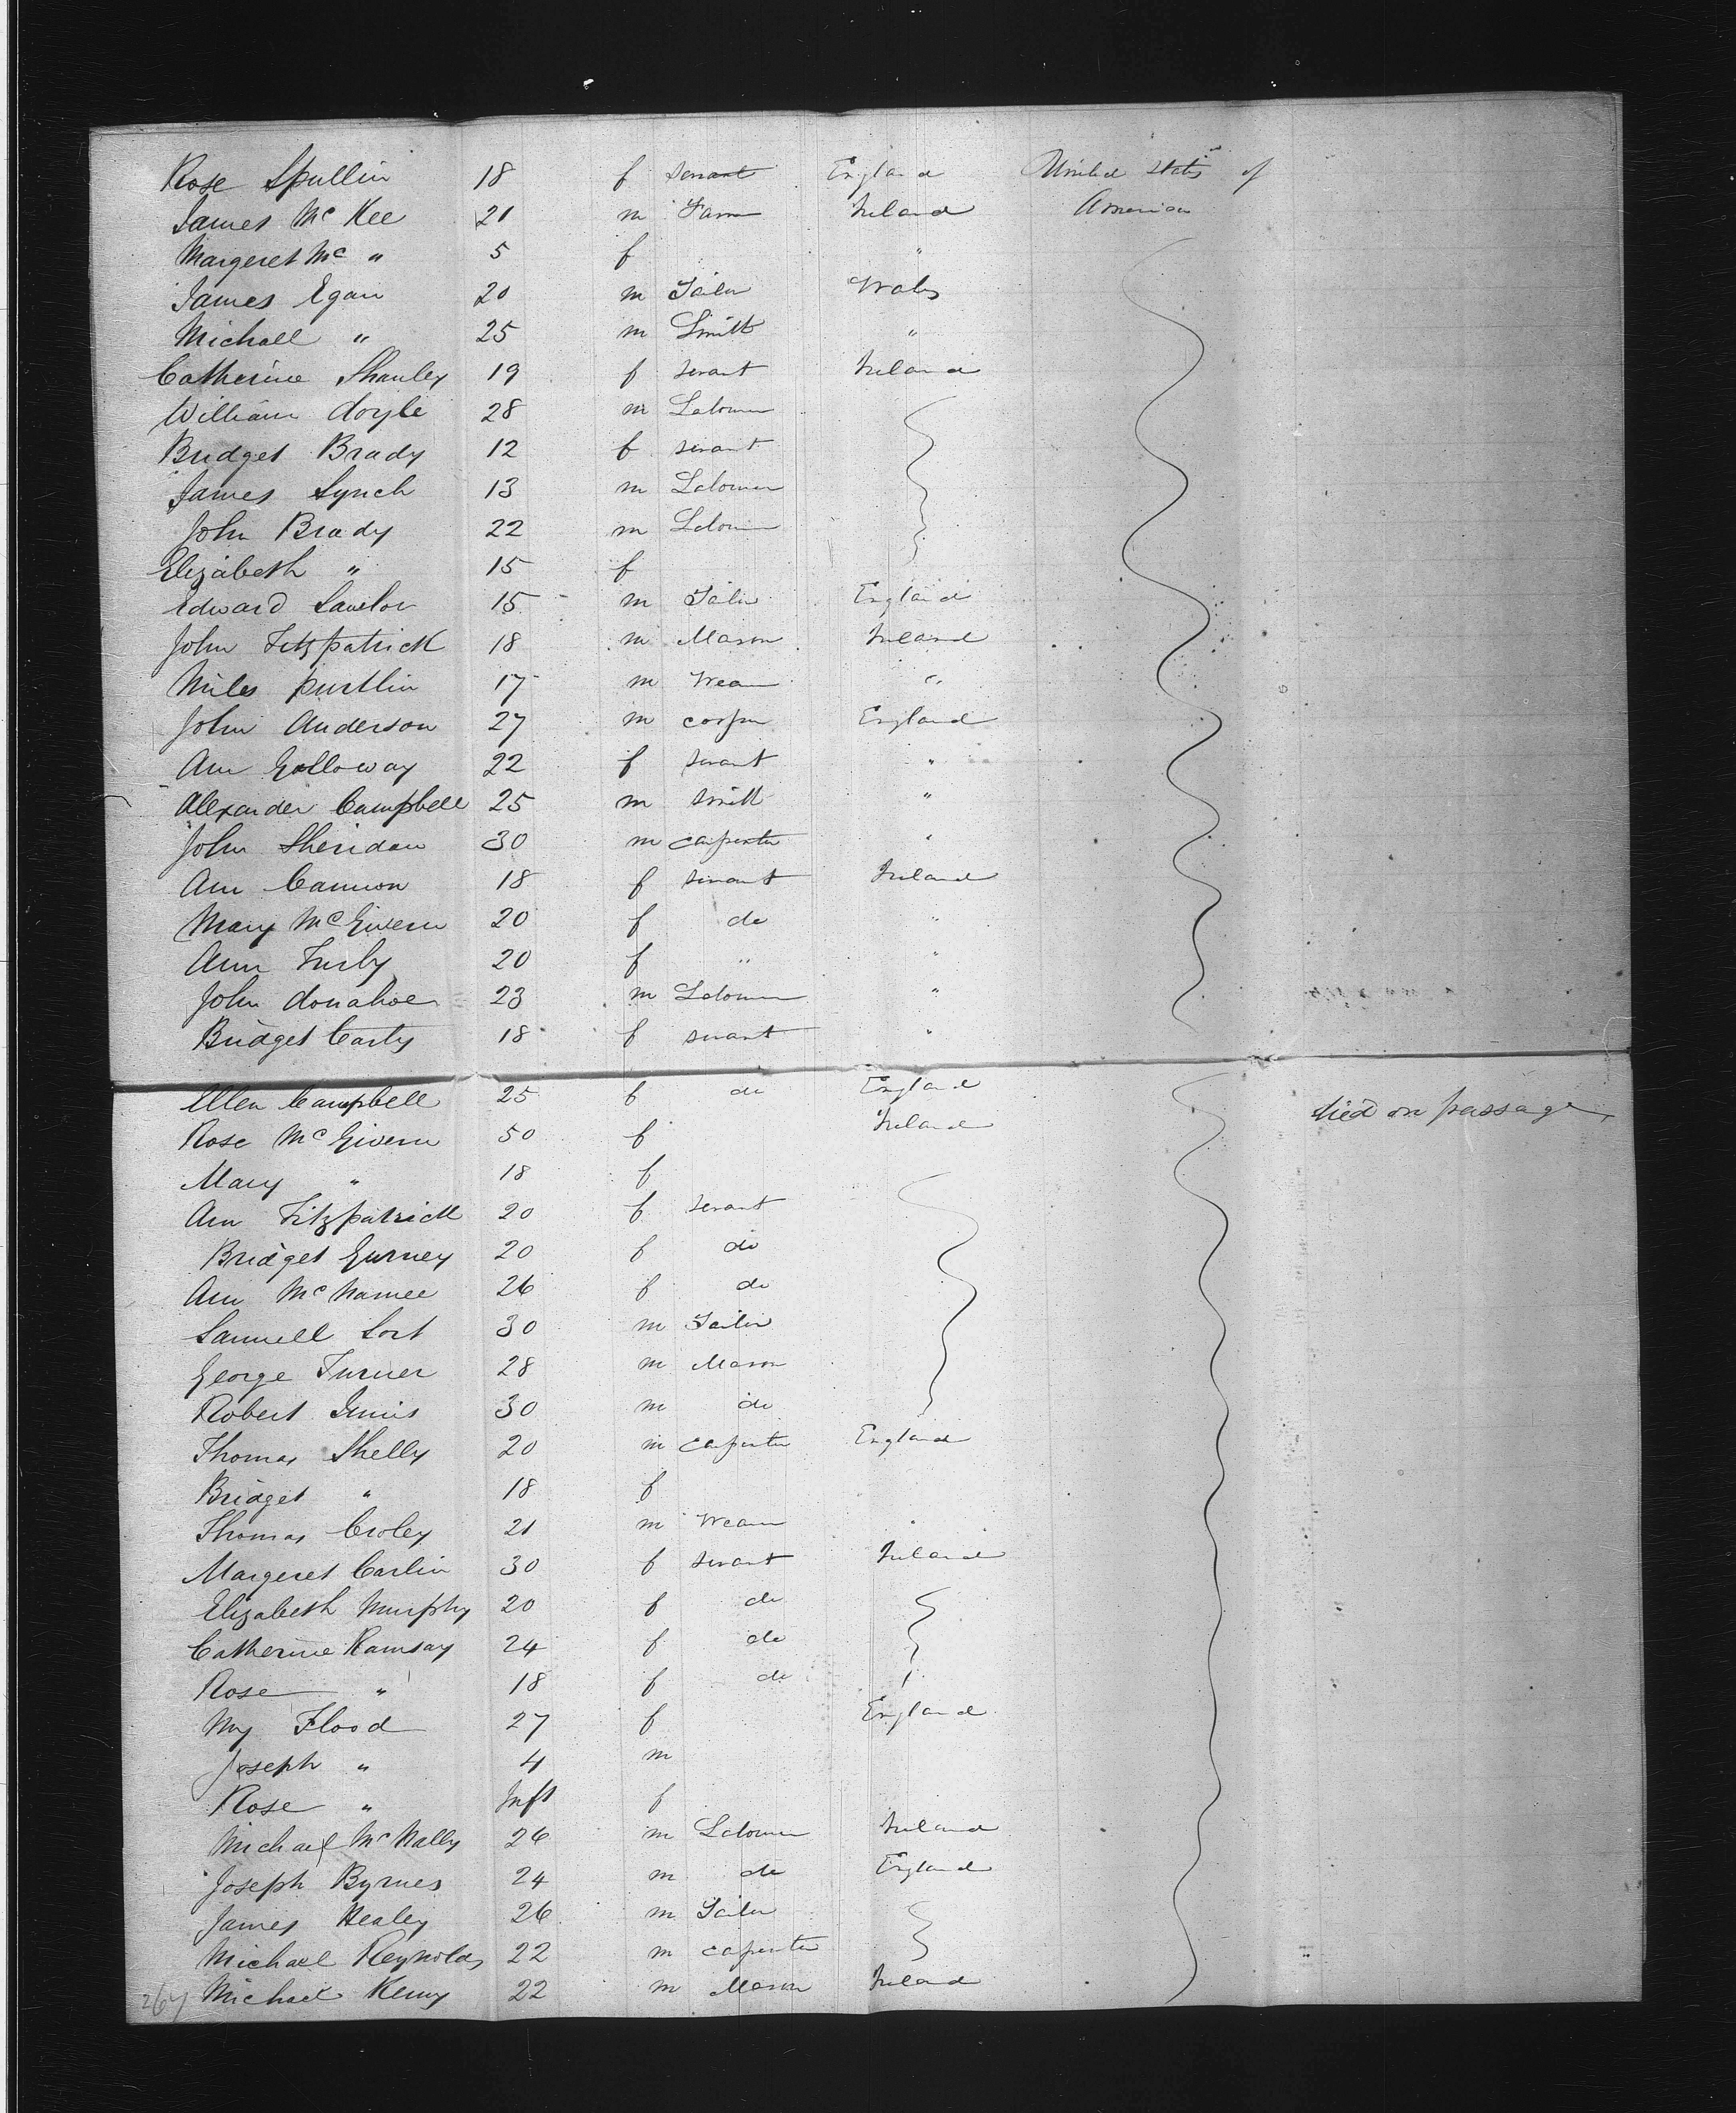 Rose Spullin 18 f servant England United States of
James McKee 21 m Farm Ireland America
Margeret Mc " 5 f "
James Egan 20 m Tailor Wales
Michall " 25 m Smith "
Catherine Shanley 19 f servant Ireland
William doyle 28 m Labourer
Bridget Brady 12 f servant
James Lynch 13 m Labourer
John Brady 22 m Labourer
Elizabeth " 15 f
Edward Lawlor 15 m Tailor England
John Fitzpatrick 18 m Mason Ireland
Miles 17 m Weaver "
John Anderson 27 m England
Ann Golloway 22 f servant "
Alexander Campbell 25 m Smith "
John Sheridan 30 m carpenter "
Ann Cannon 18 f servant Ireland
Mary McGivern 20 f do "
Ann 20 f " "
John donahoe 23 m Labourer "
Bridget Carty 18 f servant "
Ellen Campbell 25 f do England
Rose McGivern 50 f Ireland died on passage
Mary " 18 f
Ann Fitzpatrick 20 f servant
Bridget Gurney 20 f do
Ann McNamee 26 f do
Samuell Lort 30 m Tailor
George Turner 28 m Mason
Robert 30 m do
Thomas Shelly 20 m carpenter England
Bridget " 18 f
Thomas Croley 21 m Weaver "
Margeret Carlin 30 f servant Ireland
Elizabeth Murphy 20 f do
Catherine Ramsay 24 f do
Rose " 18 f do
My Flood 27 f England
Joseph " 4 m
Rose " Inft f
Michael McNally 26 m Labourer Ireland
Joseph Byrnes 24 m do England
James Healey 26 m Tailor
Michael Reynolds 22 m carpenter
267 Michael Kenny 22 m Mason Ireland